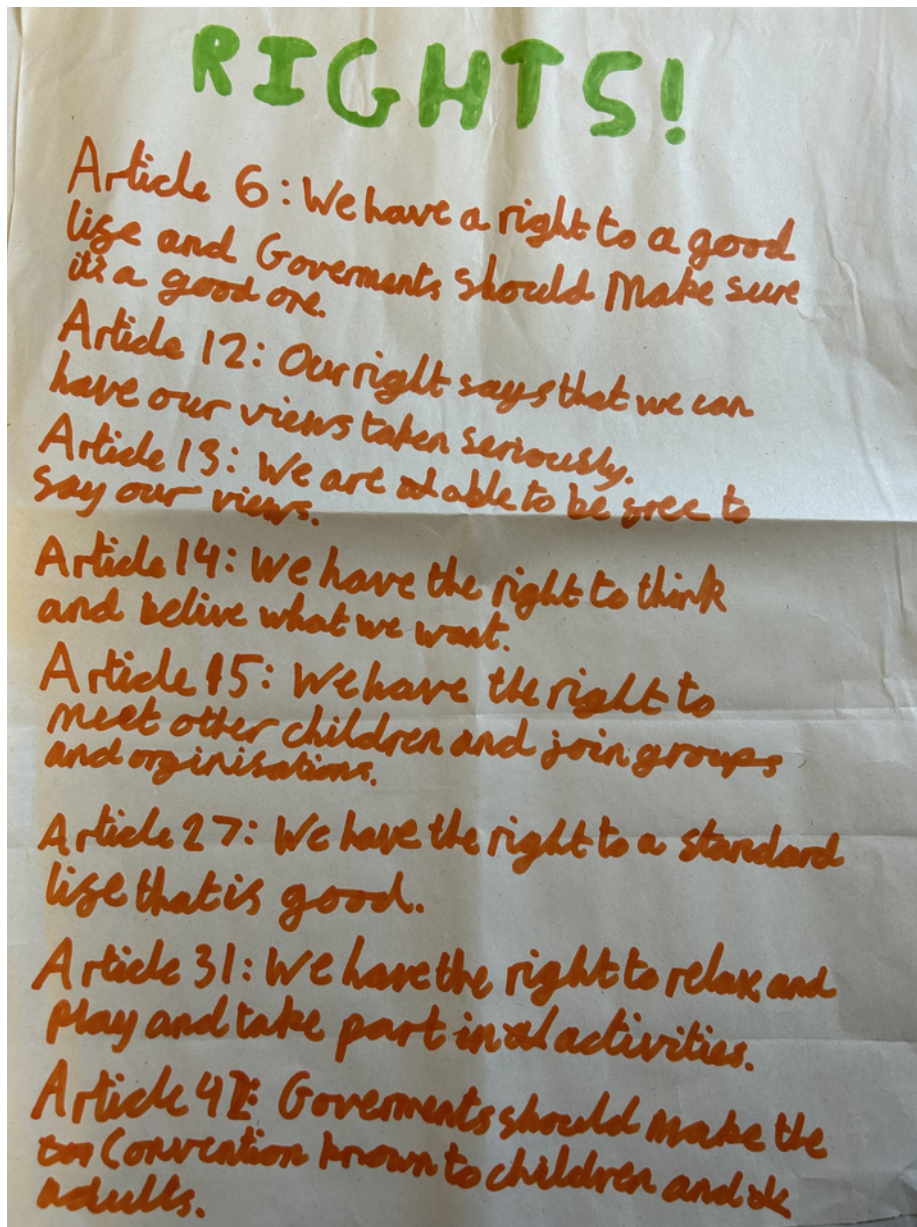 RIGHTS!
Article 6: We have a right to a good
life and Goverments should Make sure
it's a good one.
Article 12: Our right says that we can
have our views taken seriously.
Article 13: We are able to be free to
say our views.
Article 14: We have the right to think
and belive what we want.
Article 15: We have the right to
meet other children and join groups
and orginisations.
Article 27: We have the right to a standard
life that is good.
Article 31: We have the right to relax and
play and take part in activities.
Article 42: Goverments should make the
Convention known to children and
adults.